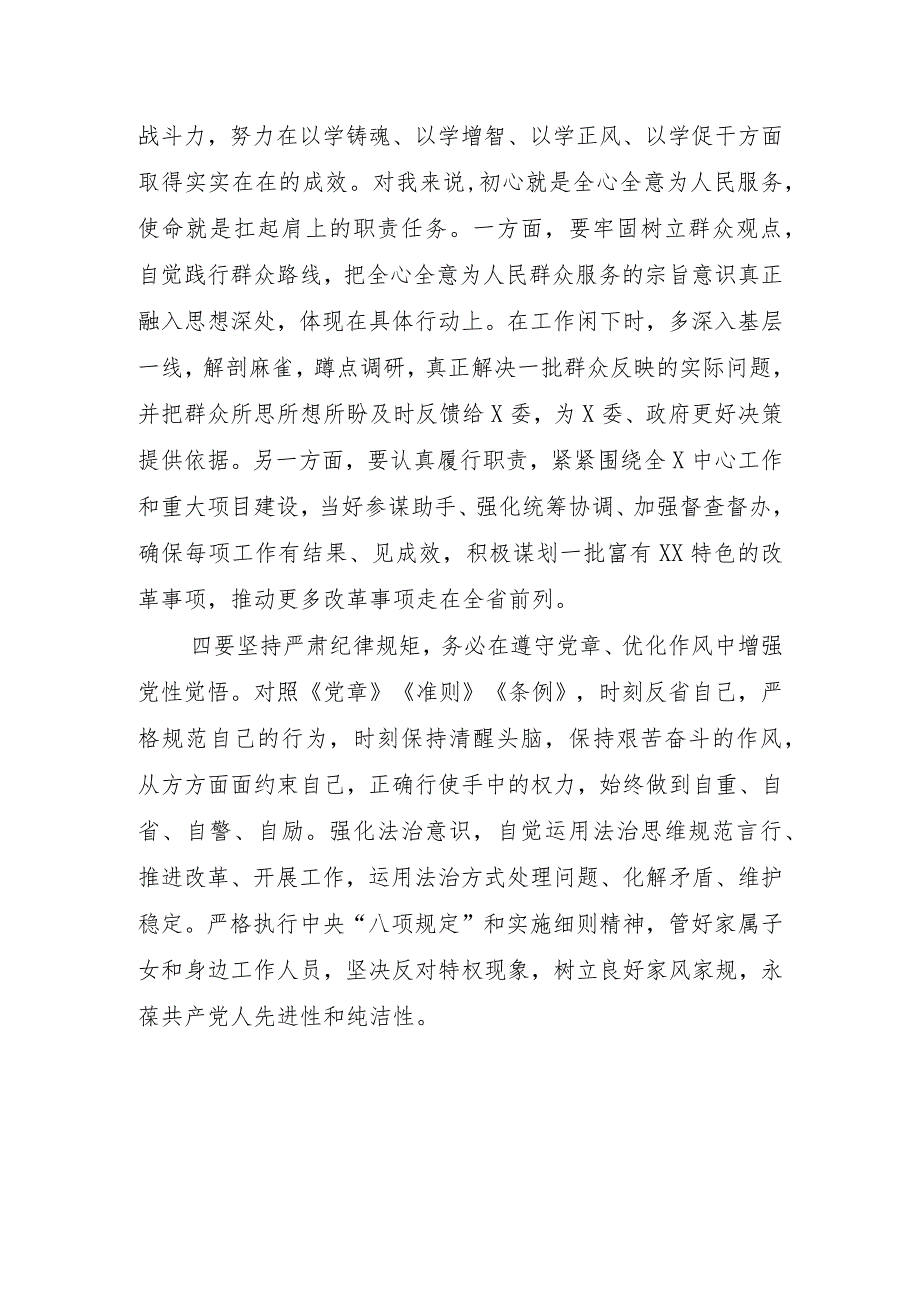 战斗力，努力在以学铸魂、以学增智、以学正风、以学促干方面
取得实实在在的成效。对我来说,初心就是全心全意为人民服务，
使命就是扛起肩上的职责任务。一方面，要牢固树立群众观点，
自觉践行群众路线，把全心全意为人民群众服务的宗旨意识真正
融入思想深处，体现在具体行动上。在工作闲下时，多深入基层
一线，解剖麻雀，蹲点调研，真正解决一批群众反映的实际问题，
并把群众所思所想所盼及时反馈给 X 委，为 X 委、政府更好决策
提供依据。另一方面，要认真履行职责，紧紧围绕全 X 中心工作
和重大项目建设，当好参谋助手、强化统筹协调、加强督查督办，
确保每项工作有结果、见成效，积极谋划一批富有 XX 特色的改
革事项，推动更多改革事项走在全省前列。
四要坚持严肃纪律规矩，务必在遵守党章、优化作风中增强
党性觉悟。对照《党章》《准则》《条例》，时刻反省自己，严
格规范自己的行为，时刻保持清醒头脑，保持艰苦奋斗的作风，
从方方面面约束自己，正确行使手中的权力，始终做到自重、自
省、自警、自励。强化法治意识，自觉运用法治思维规范言行、
推进改革、开展工作，运用法治方式处理问题、化解矛盾、维护
稳定。严格执行中央“八项规定”和实施细则精神，管好家属子
女和身边工作人员，坚决反对特权现象，树立良好家风家规，永
葆共产党人先进性和纯洁性。